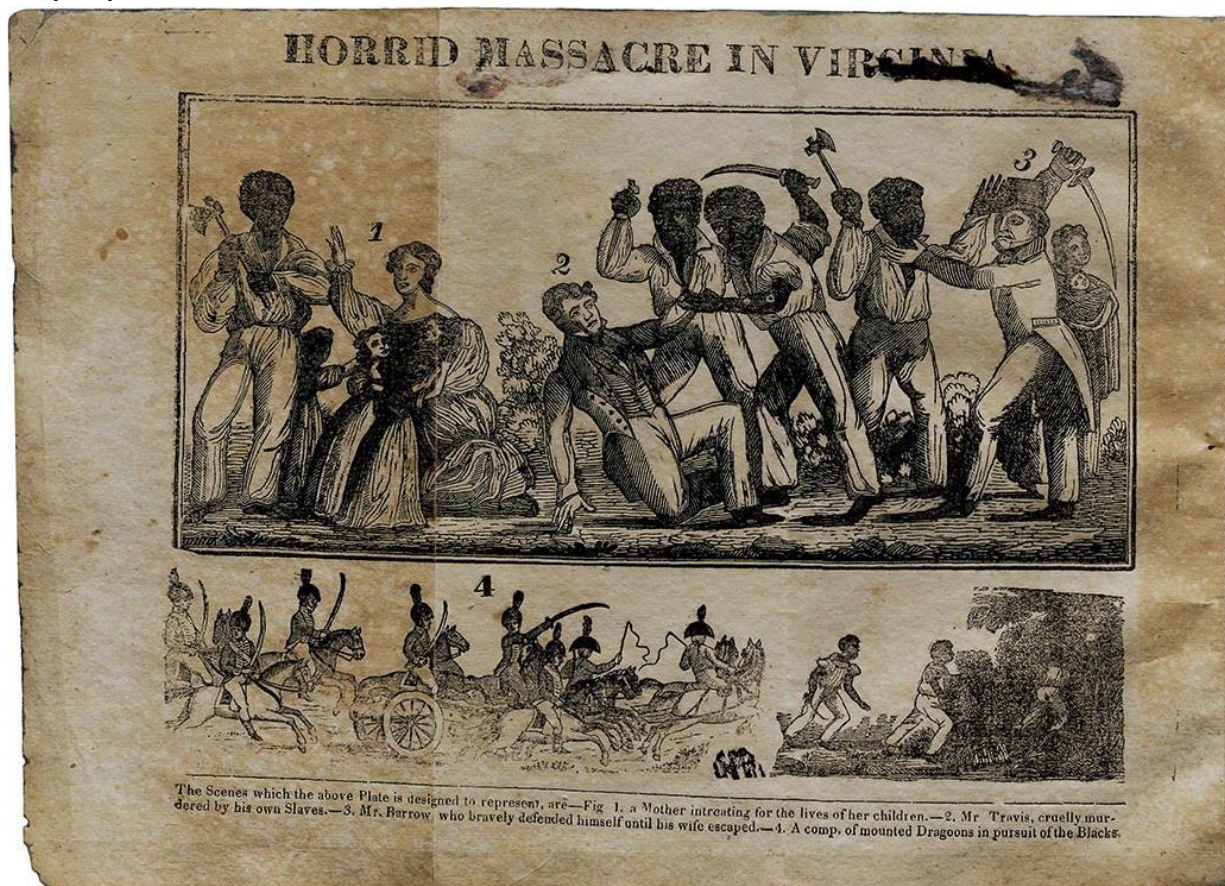 HORRID MASSACRE IN VIRGINIA.
1
2
3
4
The Scenes which the above Plate is designed to represent, are—Fig 1. a Mother intreating for the lives of her children.—2. Mr Travis, cruelly mur-
dered by his own Slaves.—3. Mr. Barrow, who bravely defended himself until his wife escaped.—4. A comp. of mounted Dragoons in pursuit of the Blacks.